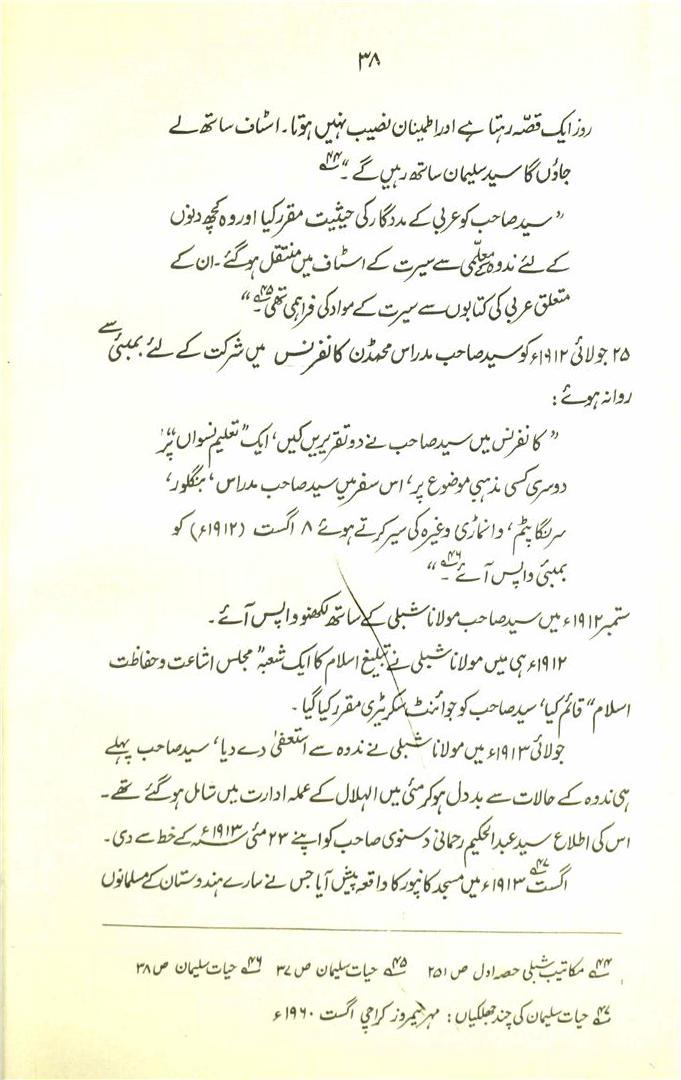 ۳۸
روز ایک قصّہ رہتا ہے اور اطمینان نصیب نہیں ہوتا۔ اسٹاف ساتھ لے
جاؤں گا سید سلیمان ساتھ رہیں گے۔“ ۴۴؎
” سید صاحب کو عربی کے مددگار کی حیثیت مقرر کیا اور وہ کچھ دنوں
کے لئے ندوہ معلّمی سے سیرت کے اسٹاف میں منتقل ہو گئے۔ ان کے
متعلق عربی کی کتابوں سے سیرت کے مواد کی فراہمی تھی۔ ۴۵؎“
۲۵ جولائی ۱۹۱۲ء کو سید صاحب مدراس محمڈن کانفرنس میں شرکت کے لئے بمبئی سے
روانہ ہوئے :
” کانفرنس میں سید صاحب نے دو تقریریں کیں، ایک ”تعلیم نسواں“ پر،
دوسری کسی مذہبی موضوع پر، اس سفر میں سید صاحب مدراس، بنگلور،
سرنگا پٹم، وانماڑی وغیرہ کی سیر کرتے ہوئے ۸ اگست (۱۹۱۲ء) کو
بمبئی واپس آئے۔ ۴۶؎“
ستمبر ۱۹۱۲ء میں سید صاحب مولانا شبلی کے ساتھ لکھنؤ واپس آئے۔
۱۹۱۲ء ہی میں مولانا شبلی نے تبلیغ اسلام کا ایک شعبہ ”مجلس اشاعت و حفاظت
اسلام“ قائم کیا، سید صاحب کو جوائنٹ سکریٹری مقرر کیا گیا۔
جولائی ۱۹۱۳ء میں مولانا شبلی نے ندوہ سے استعفیٰ دے دیا، سید صاحب پہلے
ہی ندوہ کے حالات سے بد دل ہو کر مئی میں الہلال کے عملہ ادارت میں شامل ہو گئے تھے۔
اس کی اطلاع سید عبدالحکیم رحمانی دسنوی صاحب کو اپنے ۲۳ مئی ۱۹۱۳ء کے خط سے دی۔
اگست ۴۷؎ ۱۹۱۳ء میں مسجد کانپور کا واقعہ پیش آیا جس نے سارے ہندوستان کے مسلمانوں
۴۴؎ مکاتیب شبلی حصہ اول ص ۲۵۱ ۴۵؎ حیات سلیمان ص ۳۷ ۴۶؎ حیات سلیمان ص ۳۸
۴۷؎ حیات سلیمان کی چند جھلکیاں : مہر نیمروز کراچی اگست ۱۹۶۰ء